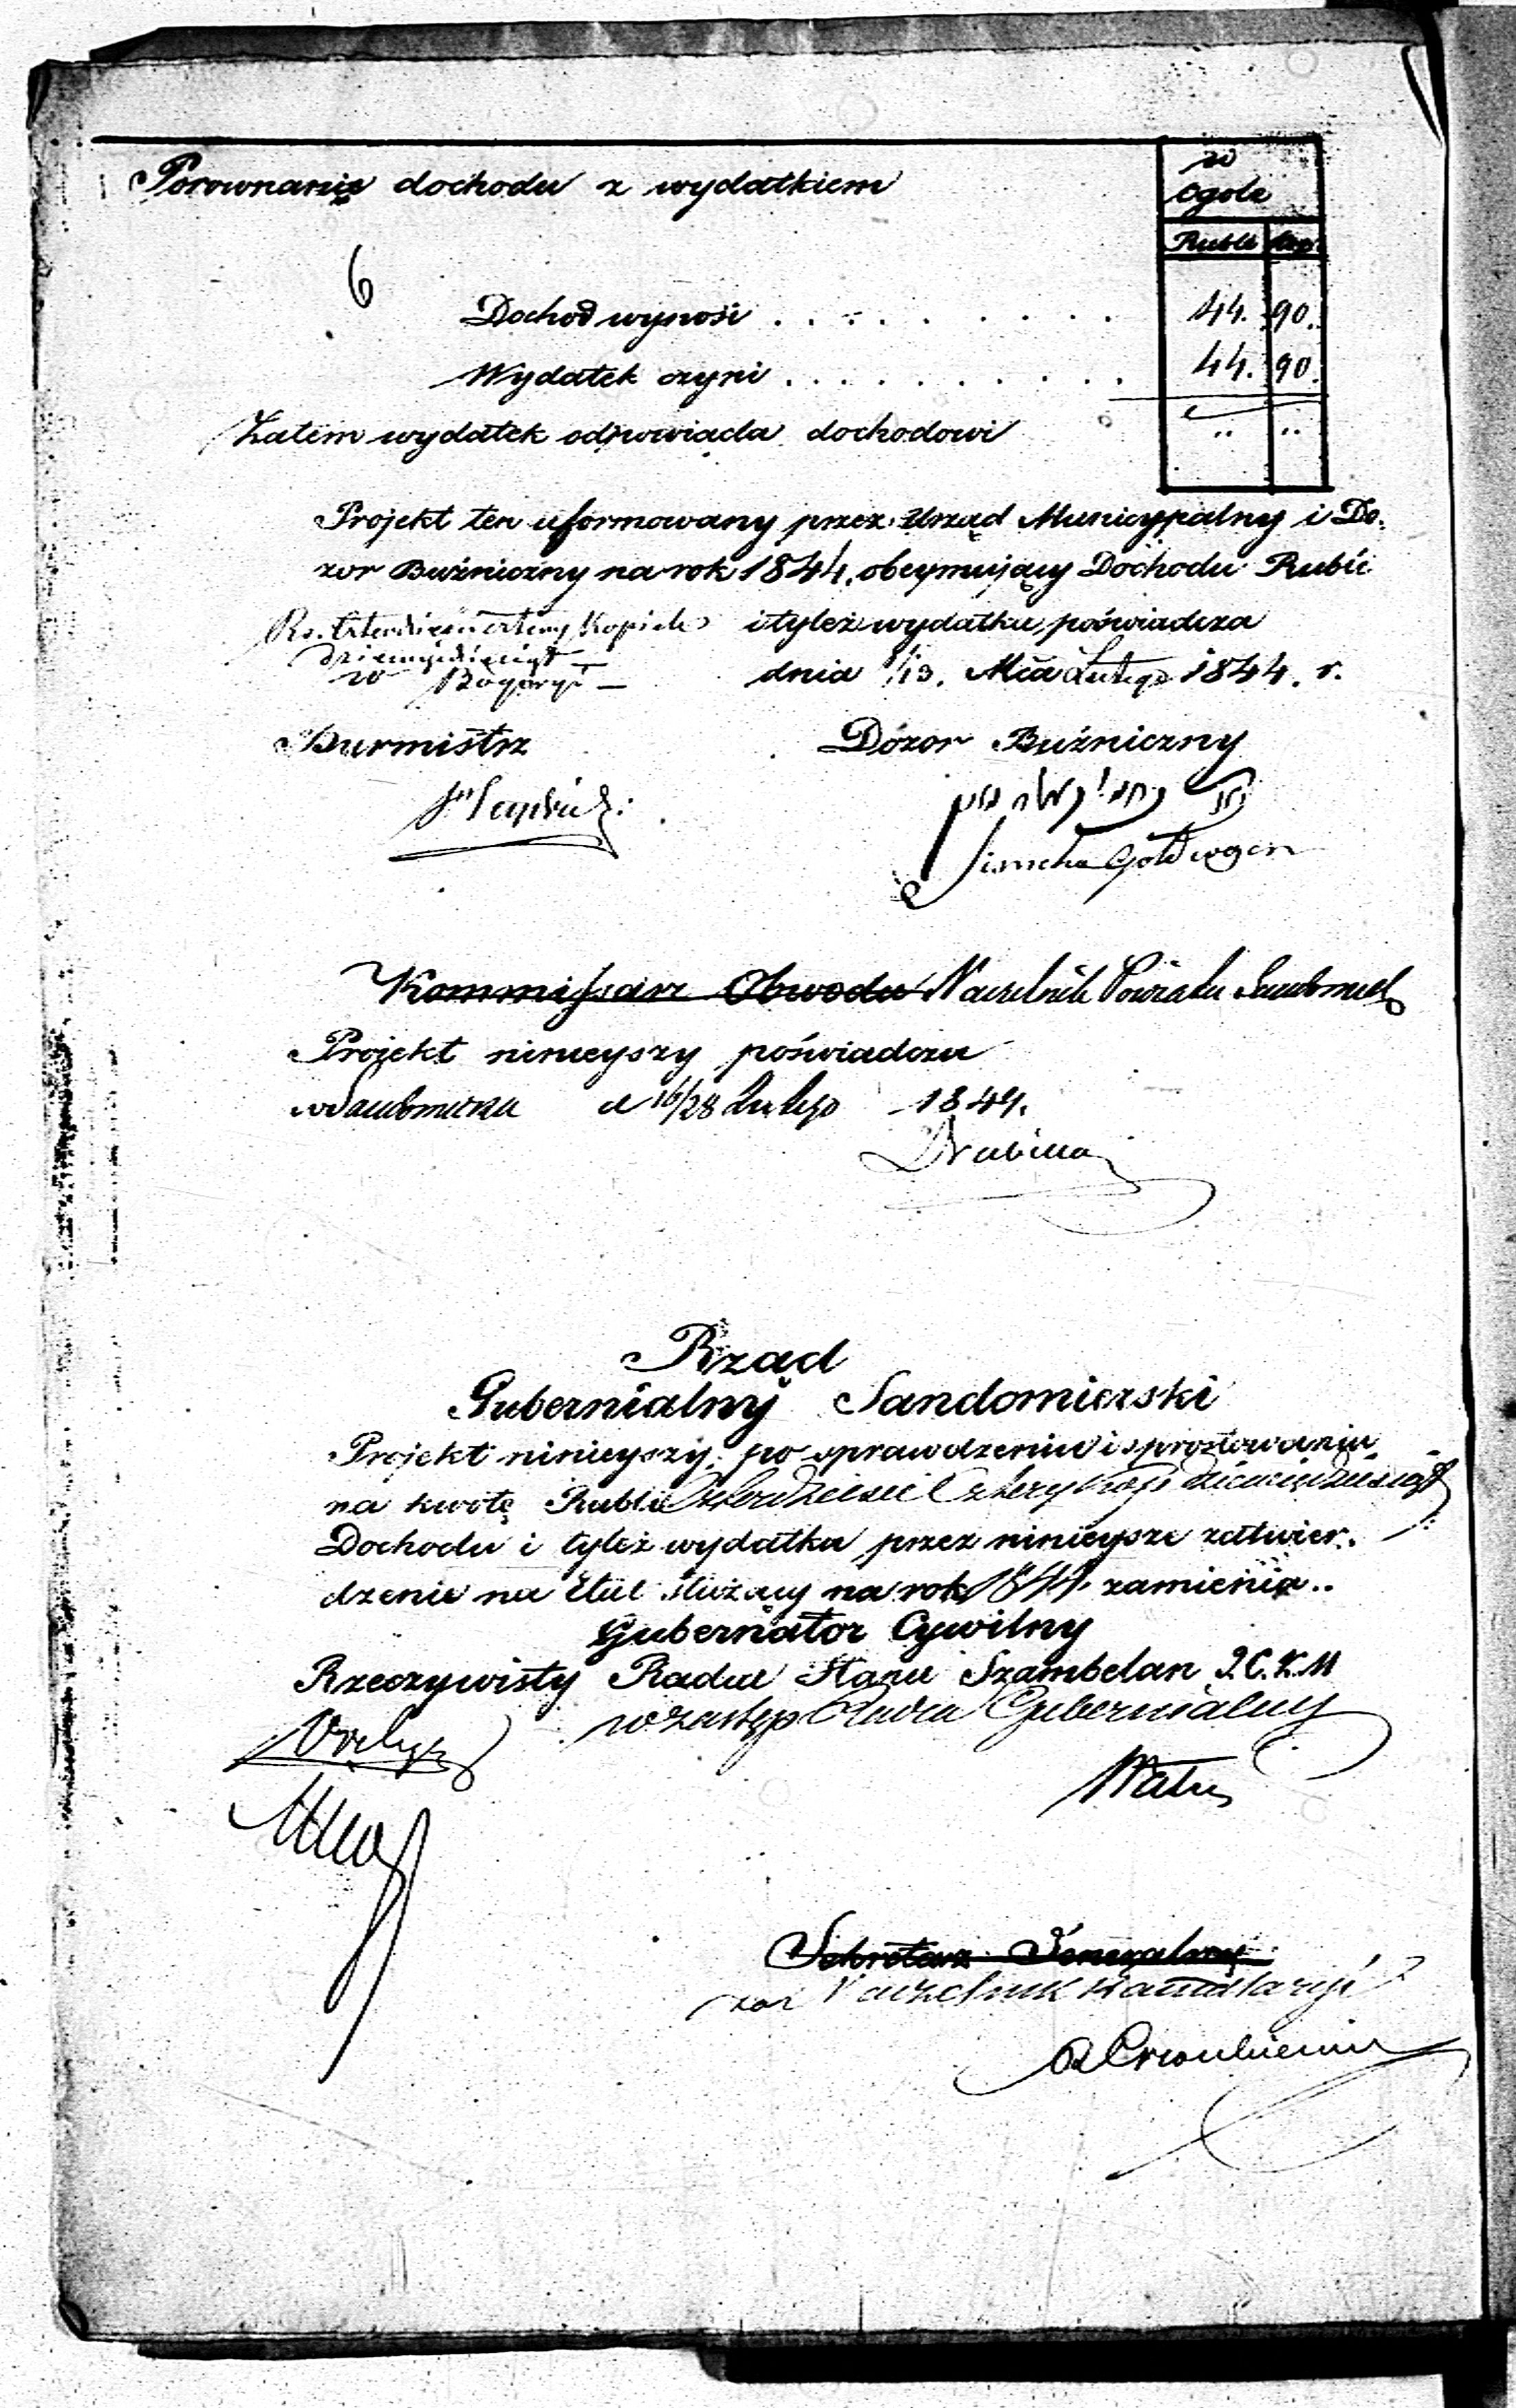 w
Ogole
Porownanie dochodu z wydatkiem
Ruble Kop.
6
Dochod wynosi . . . . . . . . . 44. 90.
Wydatek czyni . . . . . . . . . . 44. 90.
Zatem wydatek odpowiada dochodowi " "
Projekt ten uformowany przez Urząd Municypalny i Do-
zor Bużniczny na rok 1844. obeymujący Dochodu Rubli
Rs. czterdzieści cztery Kopiek i tyleż wydatku, poświadcza
dziewiędziesiąt —
w Bogoryi — dnia 1/13. Mca Lutego 1844. r.
Burmistrz Dózor Bużniczny
Simcha Goldwagen
Kommissarz Obwodu Naczelnik Powiatu Sandomirsk
Projekt nineyszy poświadcza
w Sandomierzu d 16/28 Lutego 1844.
Rząd
Gubernialny Sandomierski
Projekt ninieyszy po sprawdzeniu i sprostowaniu
na kwotę Rubli Czterdzieści Cztery Kop. dziewiędziesiąt
Dochodu i tyleż wydatku przez ninieysze zatwier-
dzenie na Etat służący na rok 1844. zamienia..
Gubernator Cywilny
Rzeczywisty Radca Stanu Szambelan J.C.K.M
w zastęp Radca Gubernialny
Sekretarz Generalny
Naczelnik Kancellaryi